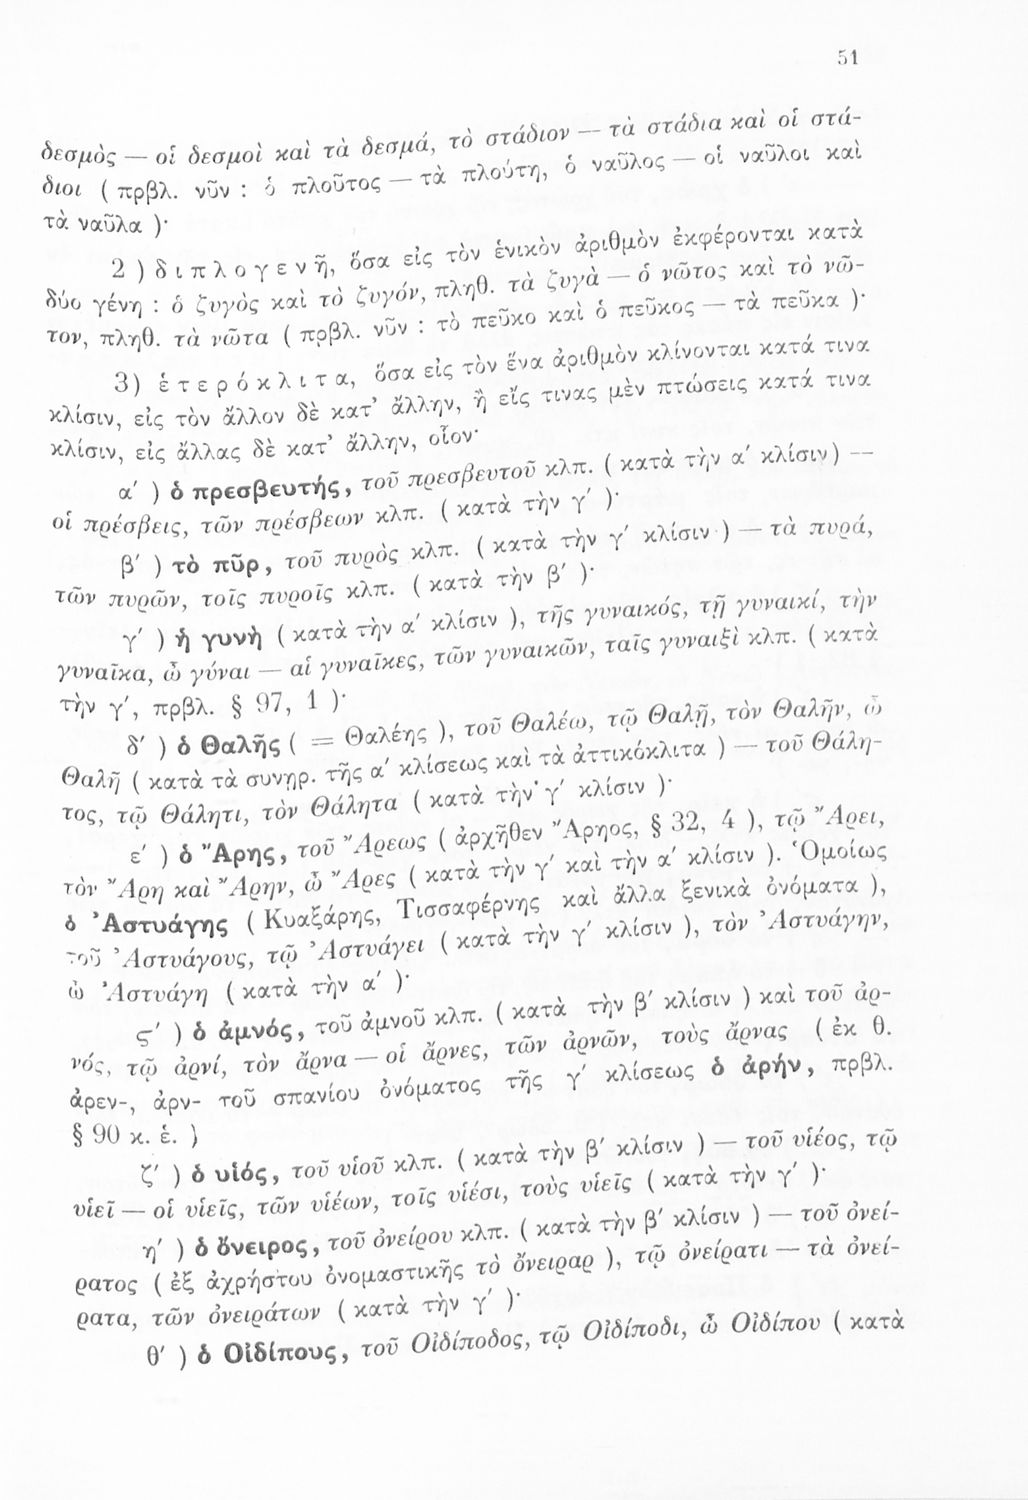 51
δεσμὸς — οἱ δεσμοὶ καὶ τὰ δεσμά, τὸ στάδιον — τὰ στάδια καὶ οἱ στά-
διοι ( πρβλ. νῦν : ὁ πλοῦτος — τὰ πλούτη, ὁ ναῦλος — οἱ ναῦλοι καὶ
τὰ ναῦλα )·
2 ) διπλογενῆ, ὅσα εἰς τὸν ἑνικὸν ἀριθμὸν ἐκφέρονται κατὰ
δύο γένη : ὁ ζυγὸς καὶ τὸ ζυγόν, πληθ. τὰ ζυγὰ — ὁ νῶτος καὶ τὸ νῶ-
τον, πληθ. τὰ νῶτα ( πρβλ. νῦν : τὸ πεῦκο καὶ ὁ πεῦκος — τὰ πεῦκα )·
3) ἑτερόκλιτα, ὅσα εἰς τὸν ἕνα ἀριθμὸν κλίνονται κατά τινα
κλίσιν, εἰς τὸν ἄλλον δὲ κατ’ ἄλλην, ἢ εἴς τινας μὲν πτώσεις κατά τινα
κλίσιν, εἰς ἄλλας δὲ κατ’ ἄλλην, οἷον·
α′ ) ὁ πρεσβευτής, τοῦ πρεσβευτοῦ κλπ. ( κατὰ τὴν α′ κλίσιν) —
οἱ πρέσβεις, τῶν πρέσβεων κλπ. ( κατὰ τὴν γ′ )·
β′ ) τὸ πῦρ, τοῦ πυρὸς κλπ. ( κατὰ τὴν γ′ κλίσιν ) — τὰ πυρά,
τῶν πυρῶν, τοῖς πυροῖς κλπ. ( κατὰ τὴν β′ )·
γ′ ) ἡ γυνὴ ( κατὰ τὴν α′ κλίσιν ), τῆς γυναικός, τῇ γυναικί, τὴν
γυναῖκα, ὦ γύναι — αἱ γυναῖκες, τῶν γυναικῶν, ταῖς γυναιξὶ κλπ. ( κατὰ
τὴν γ′, πρβλ. § 97, 1 )·
δ′ ) ὁ Θαλῆς ( = Θαλέης ), τοῦ Θαλέω, τῷ Θαλῇ, τὸν Θαλῆν, ὦ
Θαλῆ ( κατὰ τὰ συνῃρ. τῆς α′ κλίσεως καὶ τὰ ἀττικόκλιτα ) — τοῦ Θάλη-
τος, τῷ Θάλητι, τὸν Θάλητα ( κατὰ τὴν γ′ κλίσιν )·
ε′ ) ὁ Ἄρης, τοῦ Ἄρεως ( ἀρχῆθεν Ἄρηος, § 32, 4 ), τῷ Ἄρει,
τὸν Ἄρη καὶ Ἄρην, ὦ Ἄρες ( κατὰ τὴν γ′ καὶ τὴν α′ κλίσιν ). Ὁμοίως
ὁ Ἀστυάγης ( Κυαξάρης, Τισσαφέρνης καὶ ἄλλα ξενικὰ ὀνόματα ),
τοῦ Ἀστυάγους, τῷ Ἀστυάγει ( κατὰ τὴν γ′ κλίσιν ), τὸν Ἀστυάγην,
ὦ Ἀστυάγη ( κατὰ τὴν α′ )·
ς′ ) ὁ ἀμνός, τοῦ ἀμνοῦ κλπ. ( κατὰ τὴν β′ κλίσιν ) καὶ τοῦ ἀρ-
νός, τῷ ἀρνί, τὸν ἄρνα — οἱ ἄρνες, τῶν ἀρνῶν, τοὺς ἄρνας ( ἐκ θ.
ἀρεν-, ἀρν- τοῦ σπανίου ὀνόματος τῆς γ′ κλίσεως ὁ ἀρήν, πρβλ.
§ 90 κ. ἑ. )
ζ′ ) ὁ υἱός, τοῦ υἱοῦ κλπ. ( κατὰ τὴν β′ κλίσιν ) — τοῦ υἱέος, τῷ
υἱεῖ — οἱ υἱεῖς, τῶν υἱέων, τοῖς υἱέσι, τοὺς υἱεῖς ( κατὰ τὴν γ′ )·
η′ ) ὁ ὄνειρος, τοῦ ὀνείρου κλπ. ( κατὰ τὴν β′ κλίσιν ) — τοῦ ὀνεί-
ρατος ( ἐξ ἀχρήστου ὀνομαστικῆς τὸ ὄνειραρ ), τῷ ὀνείρατι — τὰ ὀνεί-
ρατα, τῶν ὀνειράτων ( κατὰ τὴν γ′ )·
θ′ ) ὁ Οἰδίπους, τοῦ Οἰδίποδος, τῷ Οἰδίποδι, ὦ Οἰδίπου ( κατὰ